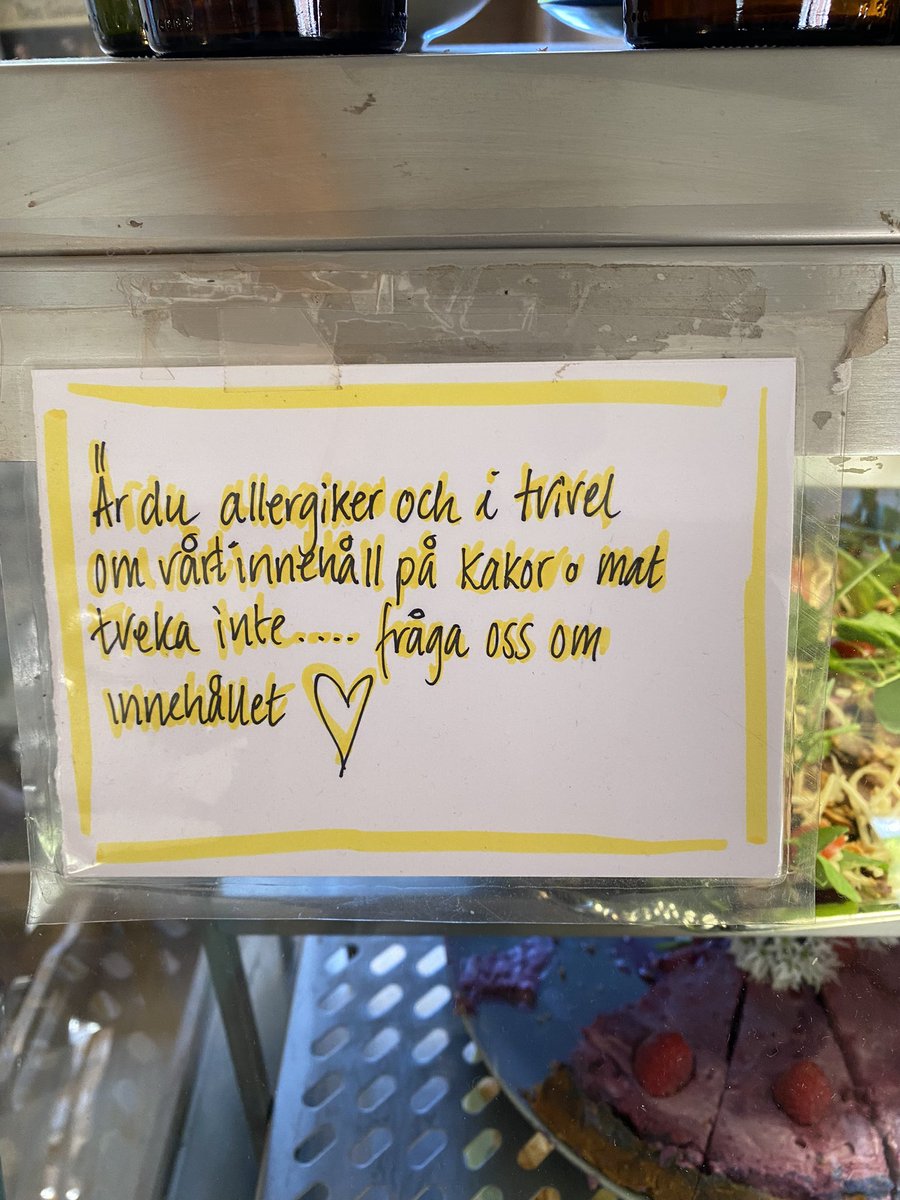 Är du allergiker och i tvivel
om vårt innehåll på kakor o mat
tveka inte..... fråga oss om
innehållet